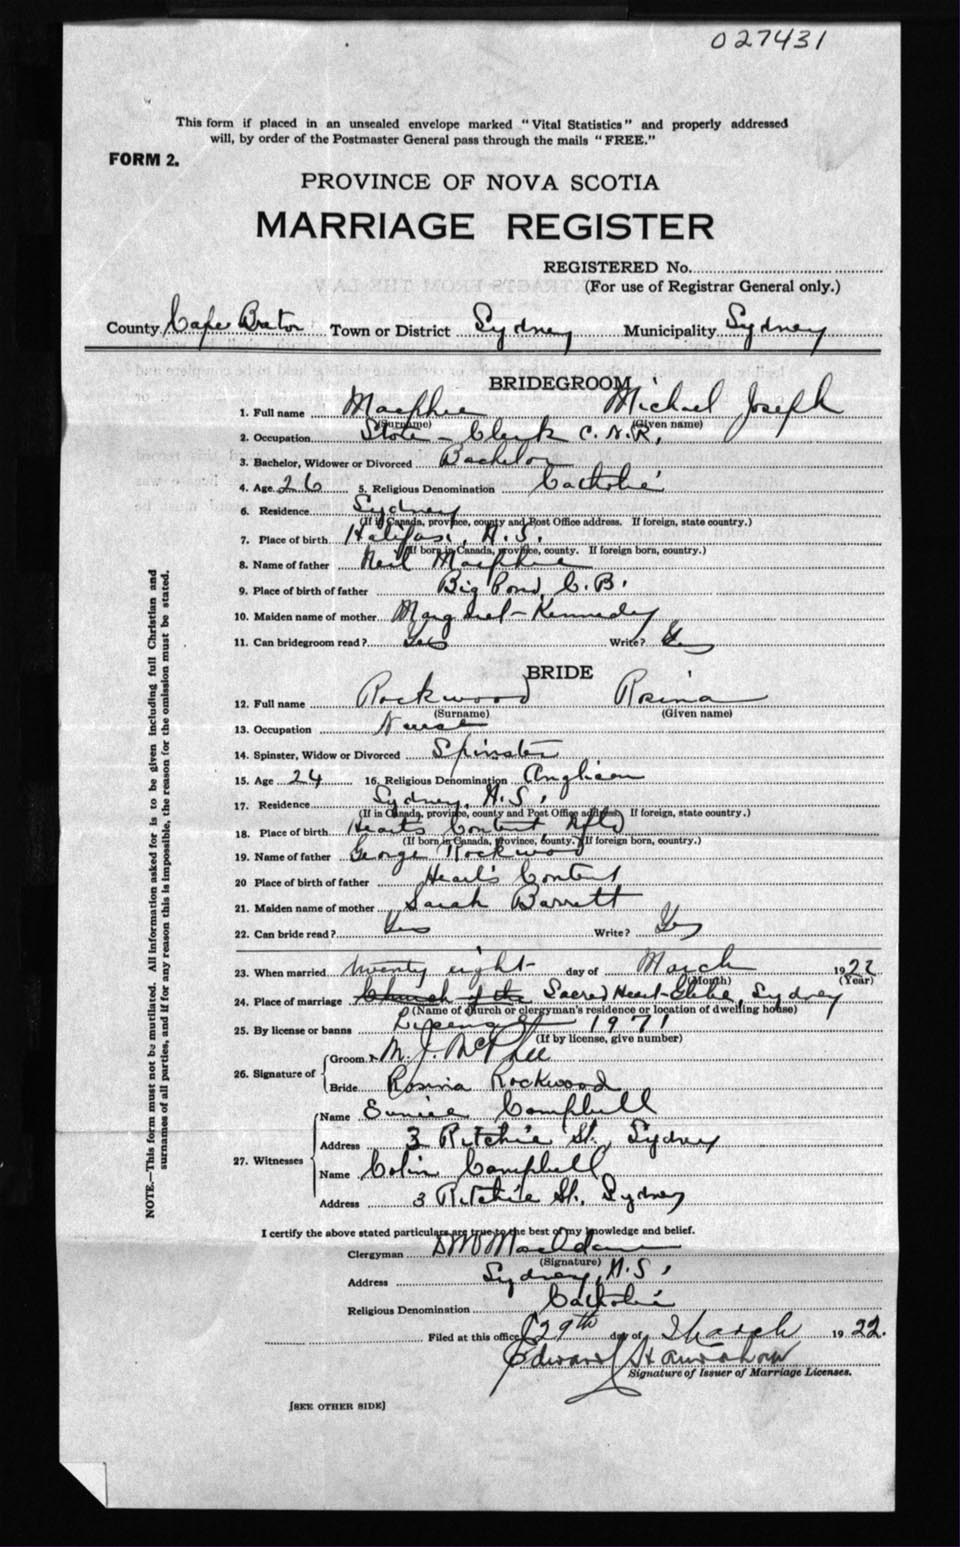 027431
This form if placed in an unsealed envelope marked "Vital Statistics" and properly addressed
will, by order of the Postmaster General pass through the mails "FREE."
FORM 2.
PROVINCE OF NOVA SCOTIA
MARRIAGE REGISTER
REGISTERED No.
(For use of Registrar General only.)
County Cape Breton Town or District Sydney Municipality Sydney
BRIDEGROOM
1. Full name MacPhee Michael Joseph
(Surname) (Given name)
2. Occupation Store - Clerk C.N.R,
3. Bachelor, Widower or Divorced Bachelor
4. Age 26 5. Religious Denomination Catholic
6. Residence Sydney
(If in Canada, province, county and Post Office address. If foreign, state country.)
7. Place of birth Halifax, N.S.
(If born in Canada, province, county. If foreign born, country.)
8. Name of father Neil MacPhee
9. Place of birth of father Big Pond, C.B.
10. Maiden name of mother Margaret Kennedy
11. Can bridegroom read? Yes Write? Yes
BRIDE
12. Full name Rockwood Rosina
(Surname) (Given name)
13. Occupation Nurse
14. Spinster, Widow or Divorced Spinster
15. Age 24 16. Religious Denomination Anglican
17. Residence Sydney, N.S,
(If in Canada, province, county and Post Office address. If foreign, state country.)
18. Place of birth Hearts Content Nfld
(If born in Canada, province, county. If foreign born, country.)
19. Name of father George Rockwood
20 Place of birth of father Heart's Content
21. Maiden name of mother Sarah Barrett
22. Can bride read? Yes Write? Yes
23. When married twenty eight day of March 1922
(Month) (Year)
24. Place of marriage Church of the Sacred Heart Glebe, Sydney
(Name of church or clergyman's residence or location of dwelling house)
25. By license or banns License 1971
(If by license, give number)
26. Signature of Groom M. J. McPhee
Bride Rosina Rockwood
27. Witnesses Name Eunice Campbell
Address 3 Ritchie St., Sydney
Name Colin Campbell
Address 3 Ritchie St., Sydney
I certify the above stated particulars are true to the best of my knowledge and belief.
Clergyman
(Signature)
Address Sydney, N.S,
Religious Denomination Catholic
Filed at this office 29th day of March 1922.
Edward
Signature of Issuer of Marriage Licenses.
[SEE OTHER SIDE]
NOTE.—This form must not be mutilated. All information asked for is to be given including full Christian and
surnames of all parties, and if for any reason this is impossible, the reason for the omission must be stated.